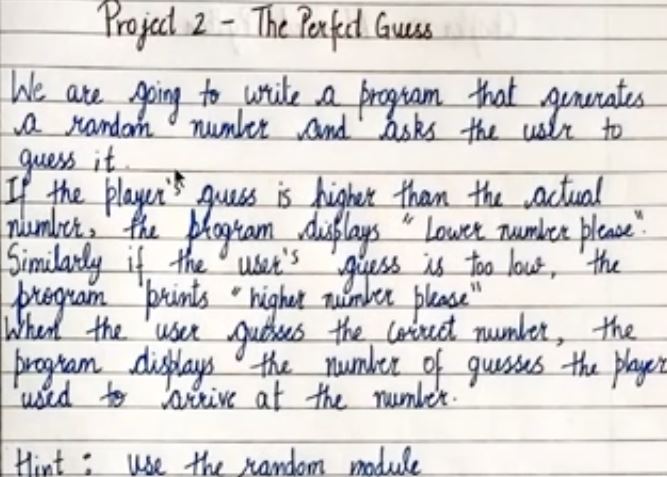 Project 2 - The Perfect Guess
We are going to write a program that generates
a random number and asks the user to
guess it.
If the player's guess is higher than the actual
number, the program displays "Lower number please".
Similarly if the user's guess is too low, the
program prints "higher number please"
When the user guesses the correct number, the
program displays the number of guesses the player
used to arrive at the number.
Hint : Use the random module